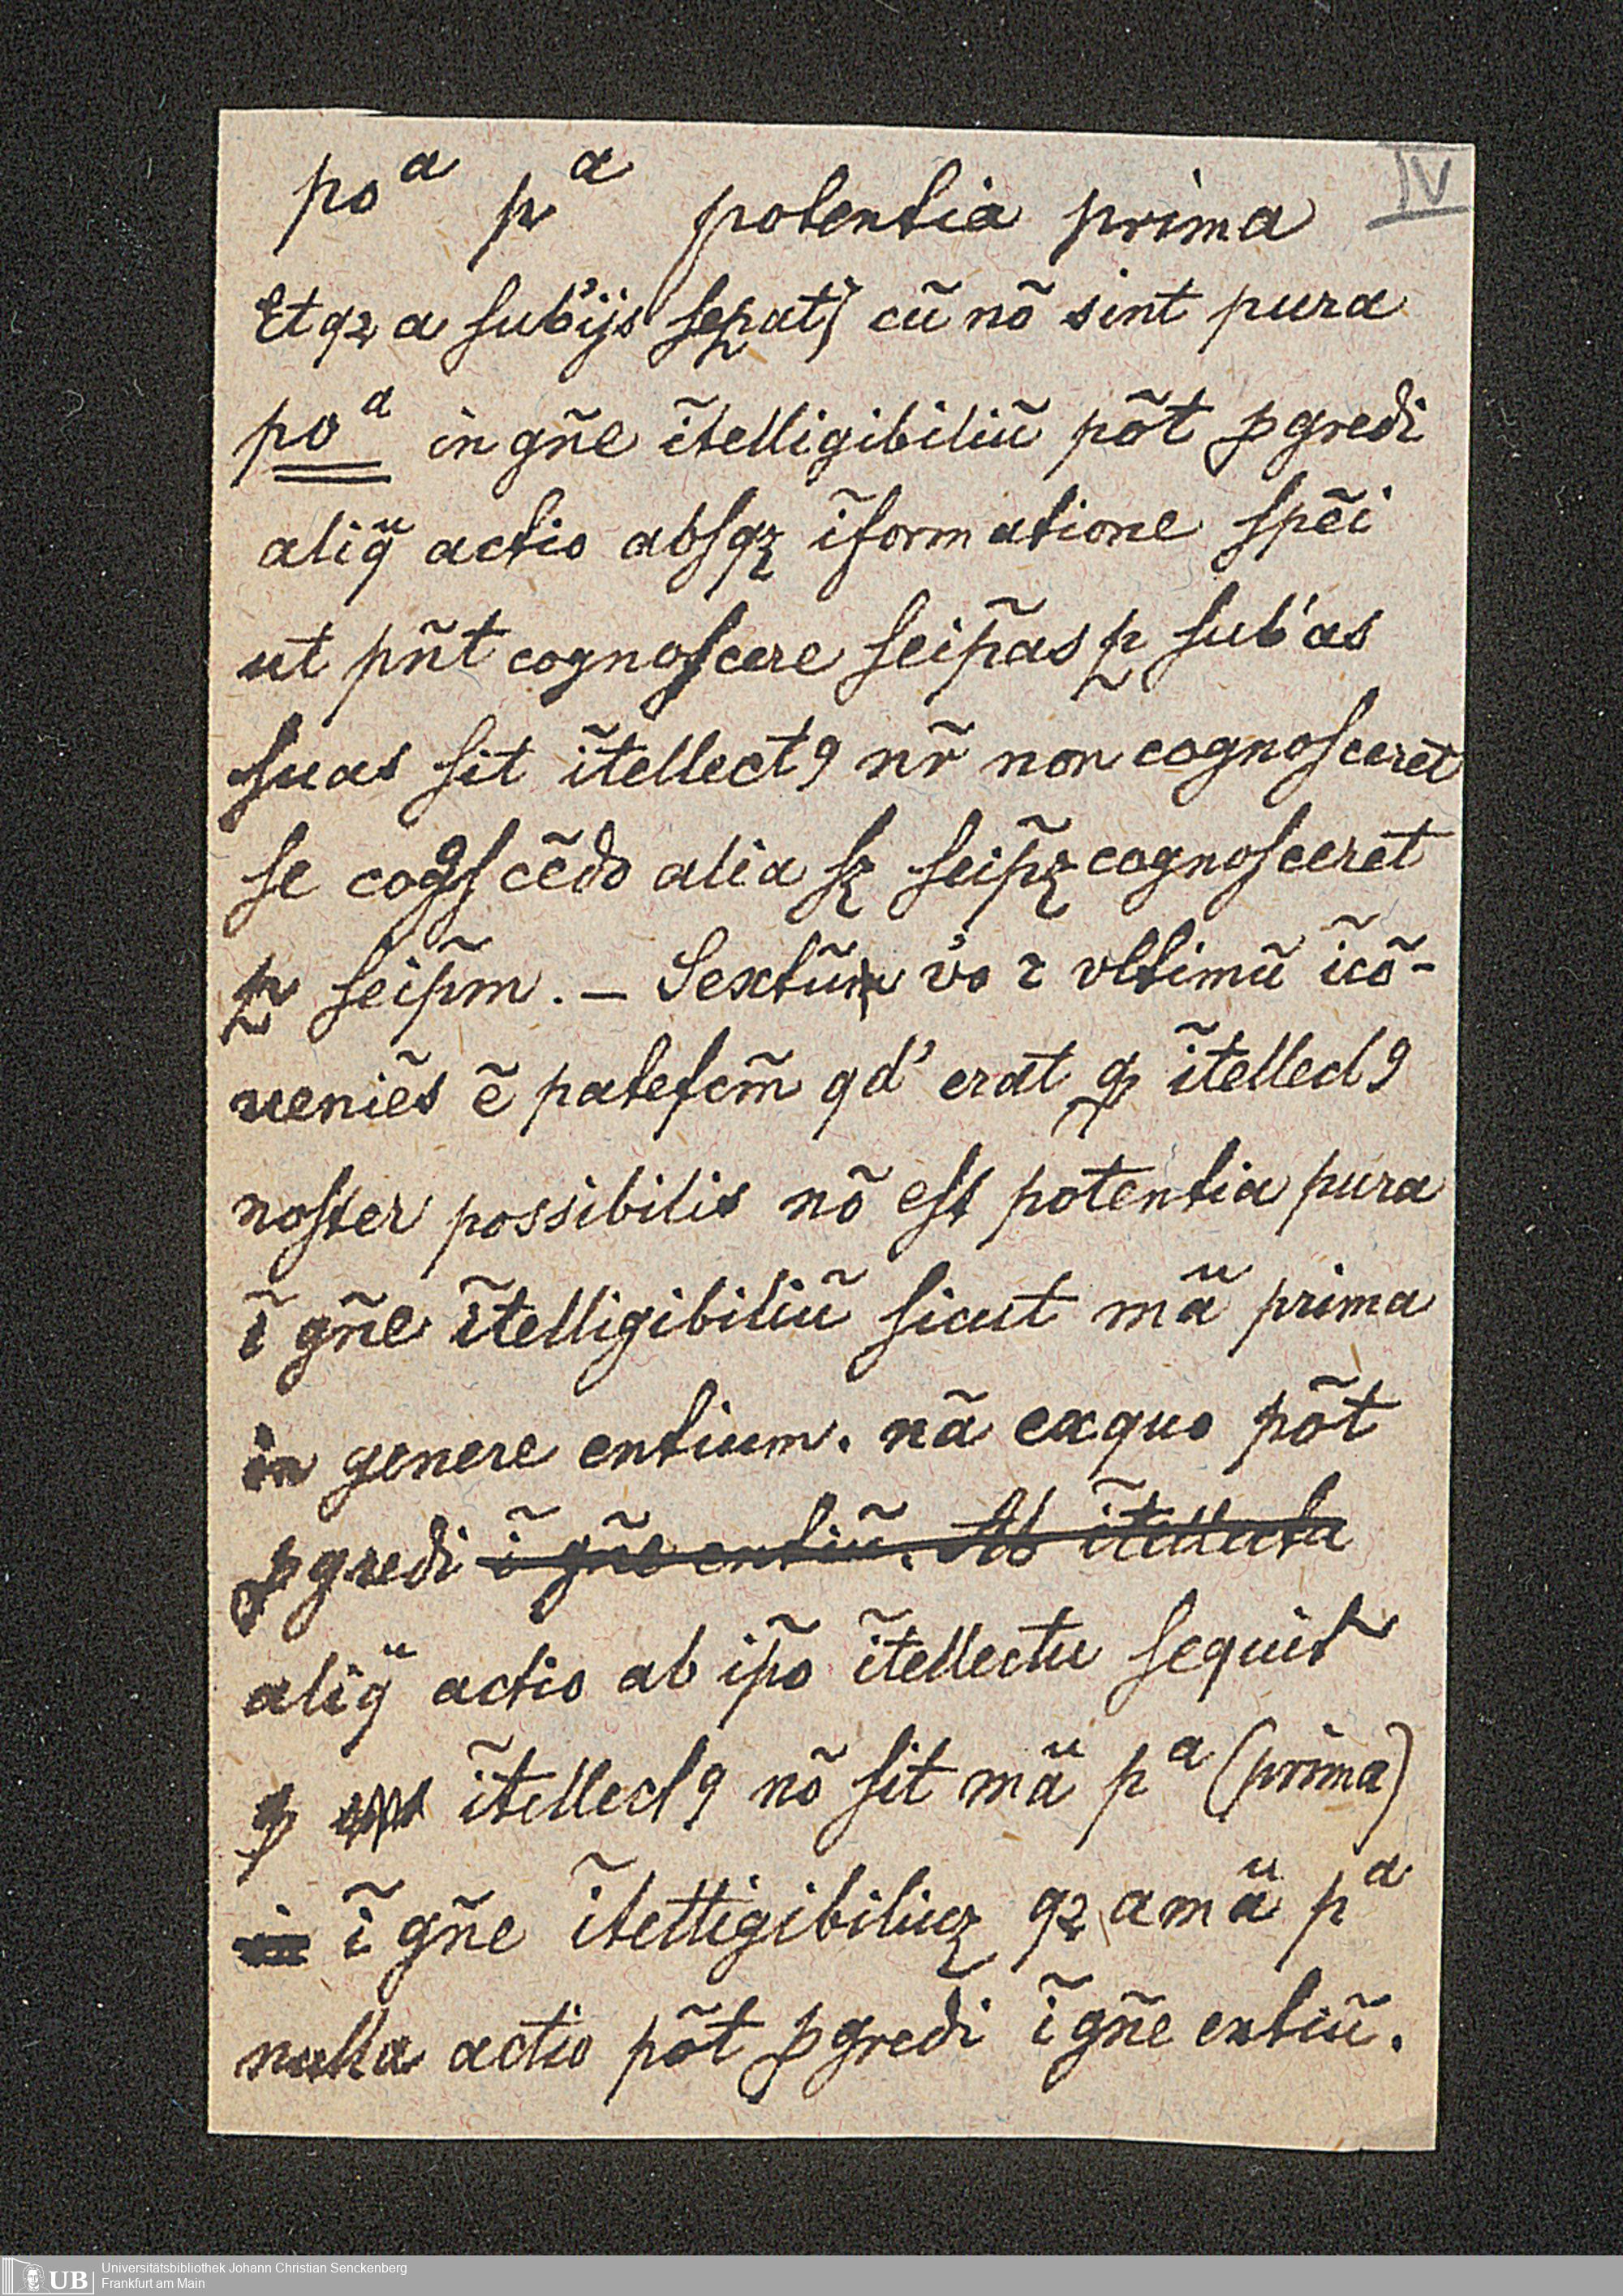 IV
poᵃ pᵃ potentia prima
Et qꝛ a ſub'ijs ſeꝑatꝭ cū nō sint pura
poᵃ in gñe ĩtelligibiliũ põt ꝓgredi
aliq̃ actio abſqꝫ ĩformatione ſpẽi
ut pñt cognoſcere ſeip̃as ꝑ ſub'as
ſuas ſit ĩtellectꝰ nr̃ non cognoſceret
ſe cogꝰſcẽdo alia ſꝫ ſeip̃ꝫ cognoſceret
ꝑ ſeip̃m. – Sextũ v'o ꝛ vltimũ ĩcõ-
ueniẽs ẽ patefcm̃ qd' erat ꝙ ĩtellectꝰ
noſter possibilis nõ eſt potentia pura
ĩ gñe ĩtelligibiliũ ſicut mã prima
in genere entium. nã exquo põt
ꝓgredi ĩ gñe entiũ. Ab ĩtellectu
aliq̃ actio ab ip̃o ĩtellectu ſequit᷑
ꝙ ĩtellectꝰ nõ ſit mã pᵃ (prima)
ĩ gñe ĩtelligibiliuꝫ qꝛ a mã pᵃ
nulla actio põt ꝓgredi ĩ gñe entiũ.
UB
Universitätsbibliothek Johann Christian Senckenberg
Frankfurt am Main